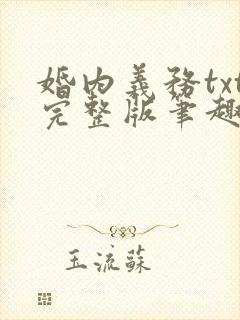 婚内義務txt
完整版筆趣
玉流蘇